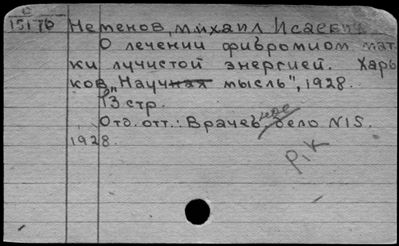 С
15170 Неменов, Михаил Исаевич
О лечении фибромиом мат-
ки лучистой энергией. Харь-
ков, "Научная мысль", 1928.
13 стр.
Отд. отт.: Врачебное дело N15.
1928.
Р.К